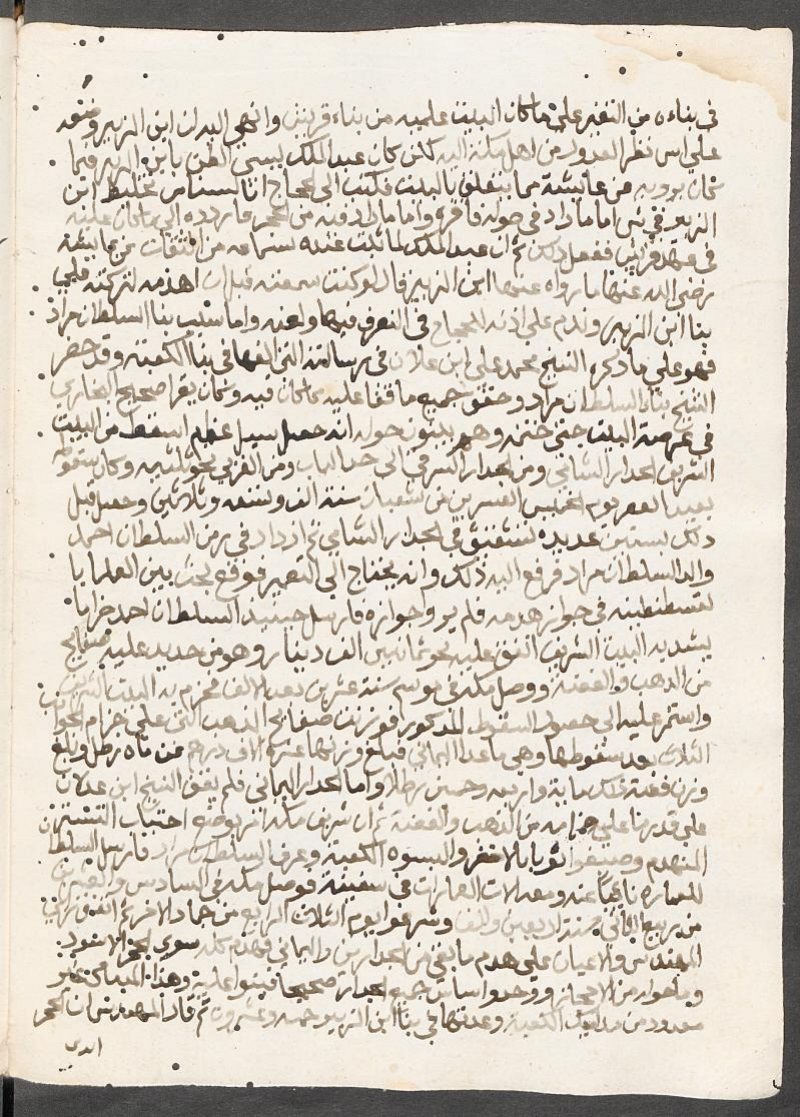 في بناءه من التغير علي ما كان البيت عليه من بناء قريش وانهي اليه ان ابن الزبير وضعه
علي اس نظر العدول من اهل مكة اليه لكن كان عبد الملك يسي الظن بابن الزبير فيما
كان يرويه عن عايشة مما يتعلق بالبيت فكتب الي الحجاج انا لسنا من تخليط ابن
الزبير في شي اما ما زاد في طوله فاقره واما ما زاد فيه من الحجر فاردده الي ما كان عليه
في عهد قريش ففعل ذلك ثم ان عبد الملك لما ثبت عنده سماعه من الثقات عن عايشة
رضي الله عنها ما رواه عنها ابن الزبير قال لو كنت سمعته قبل ان اهدمه لتركته علي
بنا ابن الزبير وندم علي اذنه للحجاج في التعرف فيها ولعنه واما سبب بنا السلطان مراد
فهو علي ما ذكره الشيخ محمد علي ابن علان في رسالته التي الفها في بنا الكعبة وقد حضر
الشيخ بناء السلطان مراد وحقق جميع ما وقفا عليه مما كان فيه وكان يقرا صحيح البخاري
في عرصة البيت حتي ختمه وهم يبنون حوله انه حصل سيل عظيم اسقط من البيت
الشريف الجدار الشامي ومن الجدار الشرقي الي حد الباب ومن الغربي نحو ثلثيه وكان سقوطه
بعد العصر يوم الخميس العشرين من شعبان سنة الف وتسعه وثلاثين وحصل قبل
ذلك بسنين عديده تشقق في الجدار الشامي ثم ازداد في زمن السلطان احمد
والد السلطان مراد فرفع اليه ذلك وانه يحتاج الي التعمير فوقع بحث بين العلما با
لقسطنطينه في جواز هدمه فلم يروا جوازه فارسل حينيد السلطان احمد حزاما
يشد به البيت الشريف انفق عليه نحو ثمانين الف دينار وهو من حديد عليه صفايح
من الذهب والفضة ووصل مكة في موسم سنة عشرين بعد الالف فحزم به البيت الشريف
واستمر عليه الي حصول السقوط المذكور فوزنت صفايح الذهب التي علي حزام الجوانب
الثلاث بعد سقوطها وهي ما عدا اليماني فبلغ وزنها عشرة الاف درهم من ماه رطل وبلغ
وزن فضة تلك ماية واربعه وخمسين رطلا واما الجدار اليماني فلم يقف الشيخ ابن علان
علي قدر ما علي حزامه من الذهب والفضة ثم ان شريف مكة امر بوضع اخشاب لتستر من
المنهدم وصنعوا ثوبا بالاخضر والبسوه الكعبة وعرف السلطان مراد فارسل السلطا
للعماره نايبا عنه ومعه الات العمارات في سفينة فوصل مكة في السادس والعشرين
من ربيع الثاني سنة اربعين والف وشرعوا يوم الثلاث الرابع من جماد الاخر ثم اتفق راي
المهندس والاعيان علي هدم ما بقي من الجدارين واليماني فهدم كله سوي الحجر الاسود
وما حواه من الاحجار ووجدوا اساس جميع الجدار صحيحا فبنوا عليه وهذا المبنا في غير
معدود من مداميك الكعبة وعدتها في بنا ابن الزبير خمسه وعشرون ثم قال المهندس ان الحجر
الذي